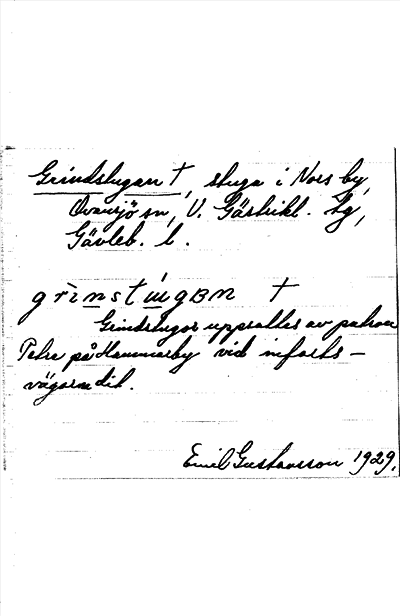 Grindstugan †, stuga i Nors by,
Ovansjö sn, V. Gästrikl. tg,
Gävleb. l.
grinstugɐn †
Grindstugor uppsattes av patron
Petre på Hammarby vid infarts-
vägarna dit.
Emil Gustavsson 1929.